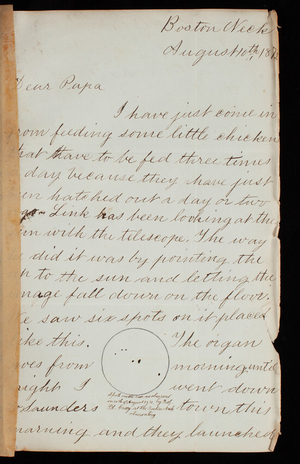 Boston Neck
August 10th, 18
Dear Papa
I have just come in
from feeding some little chicken
that have to be fed three times
day because they have just
een hatched out a day or two
Link has been looking at the
un with the telescope. The way
did it was by pointing the
to the sun and letting the
mage fall down on the floor.
e saw six spots on it placed
ike this. The organ
oes from morning until
night I went down
Saunders town this
morning and they launched